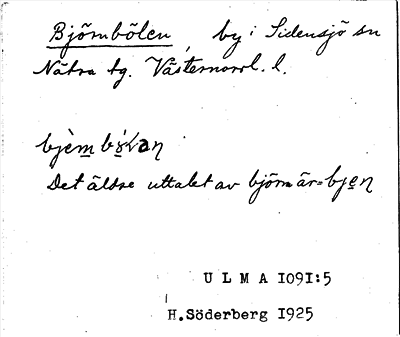 Björnbölen, by i Sidensjö sn
Nätra tg. Västernorrl. l.
Det äldre uttalet av björn är = bjen
ULMA 1091:5
H. Söderberg 1925